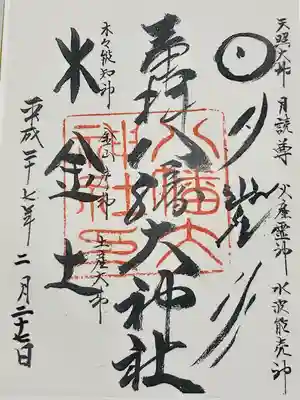 天照大神 月読尊 火産霊神 水波能売神
月
八幡大神社
八幡大神社印
木々能知神 金山彦神 土産大神
木 金 土
平成二十七年 二月二十七日